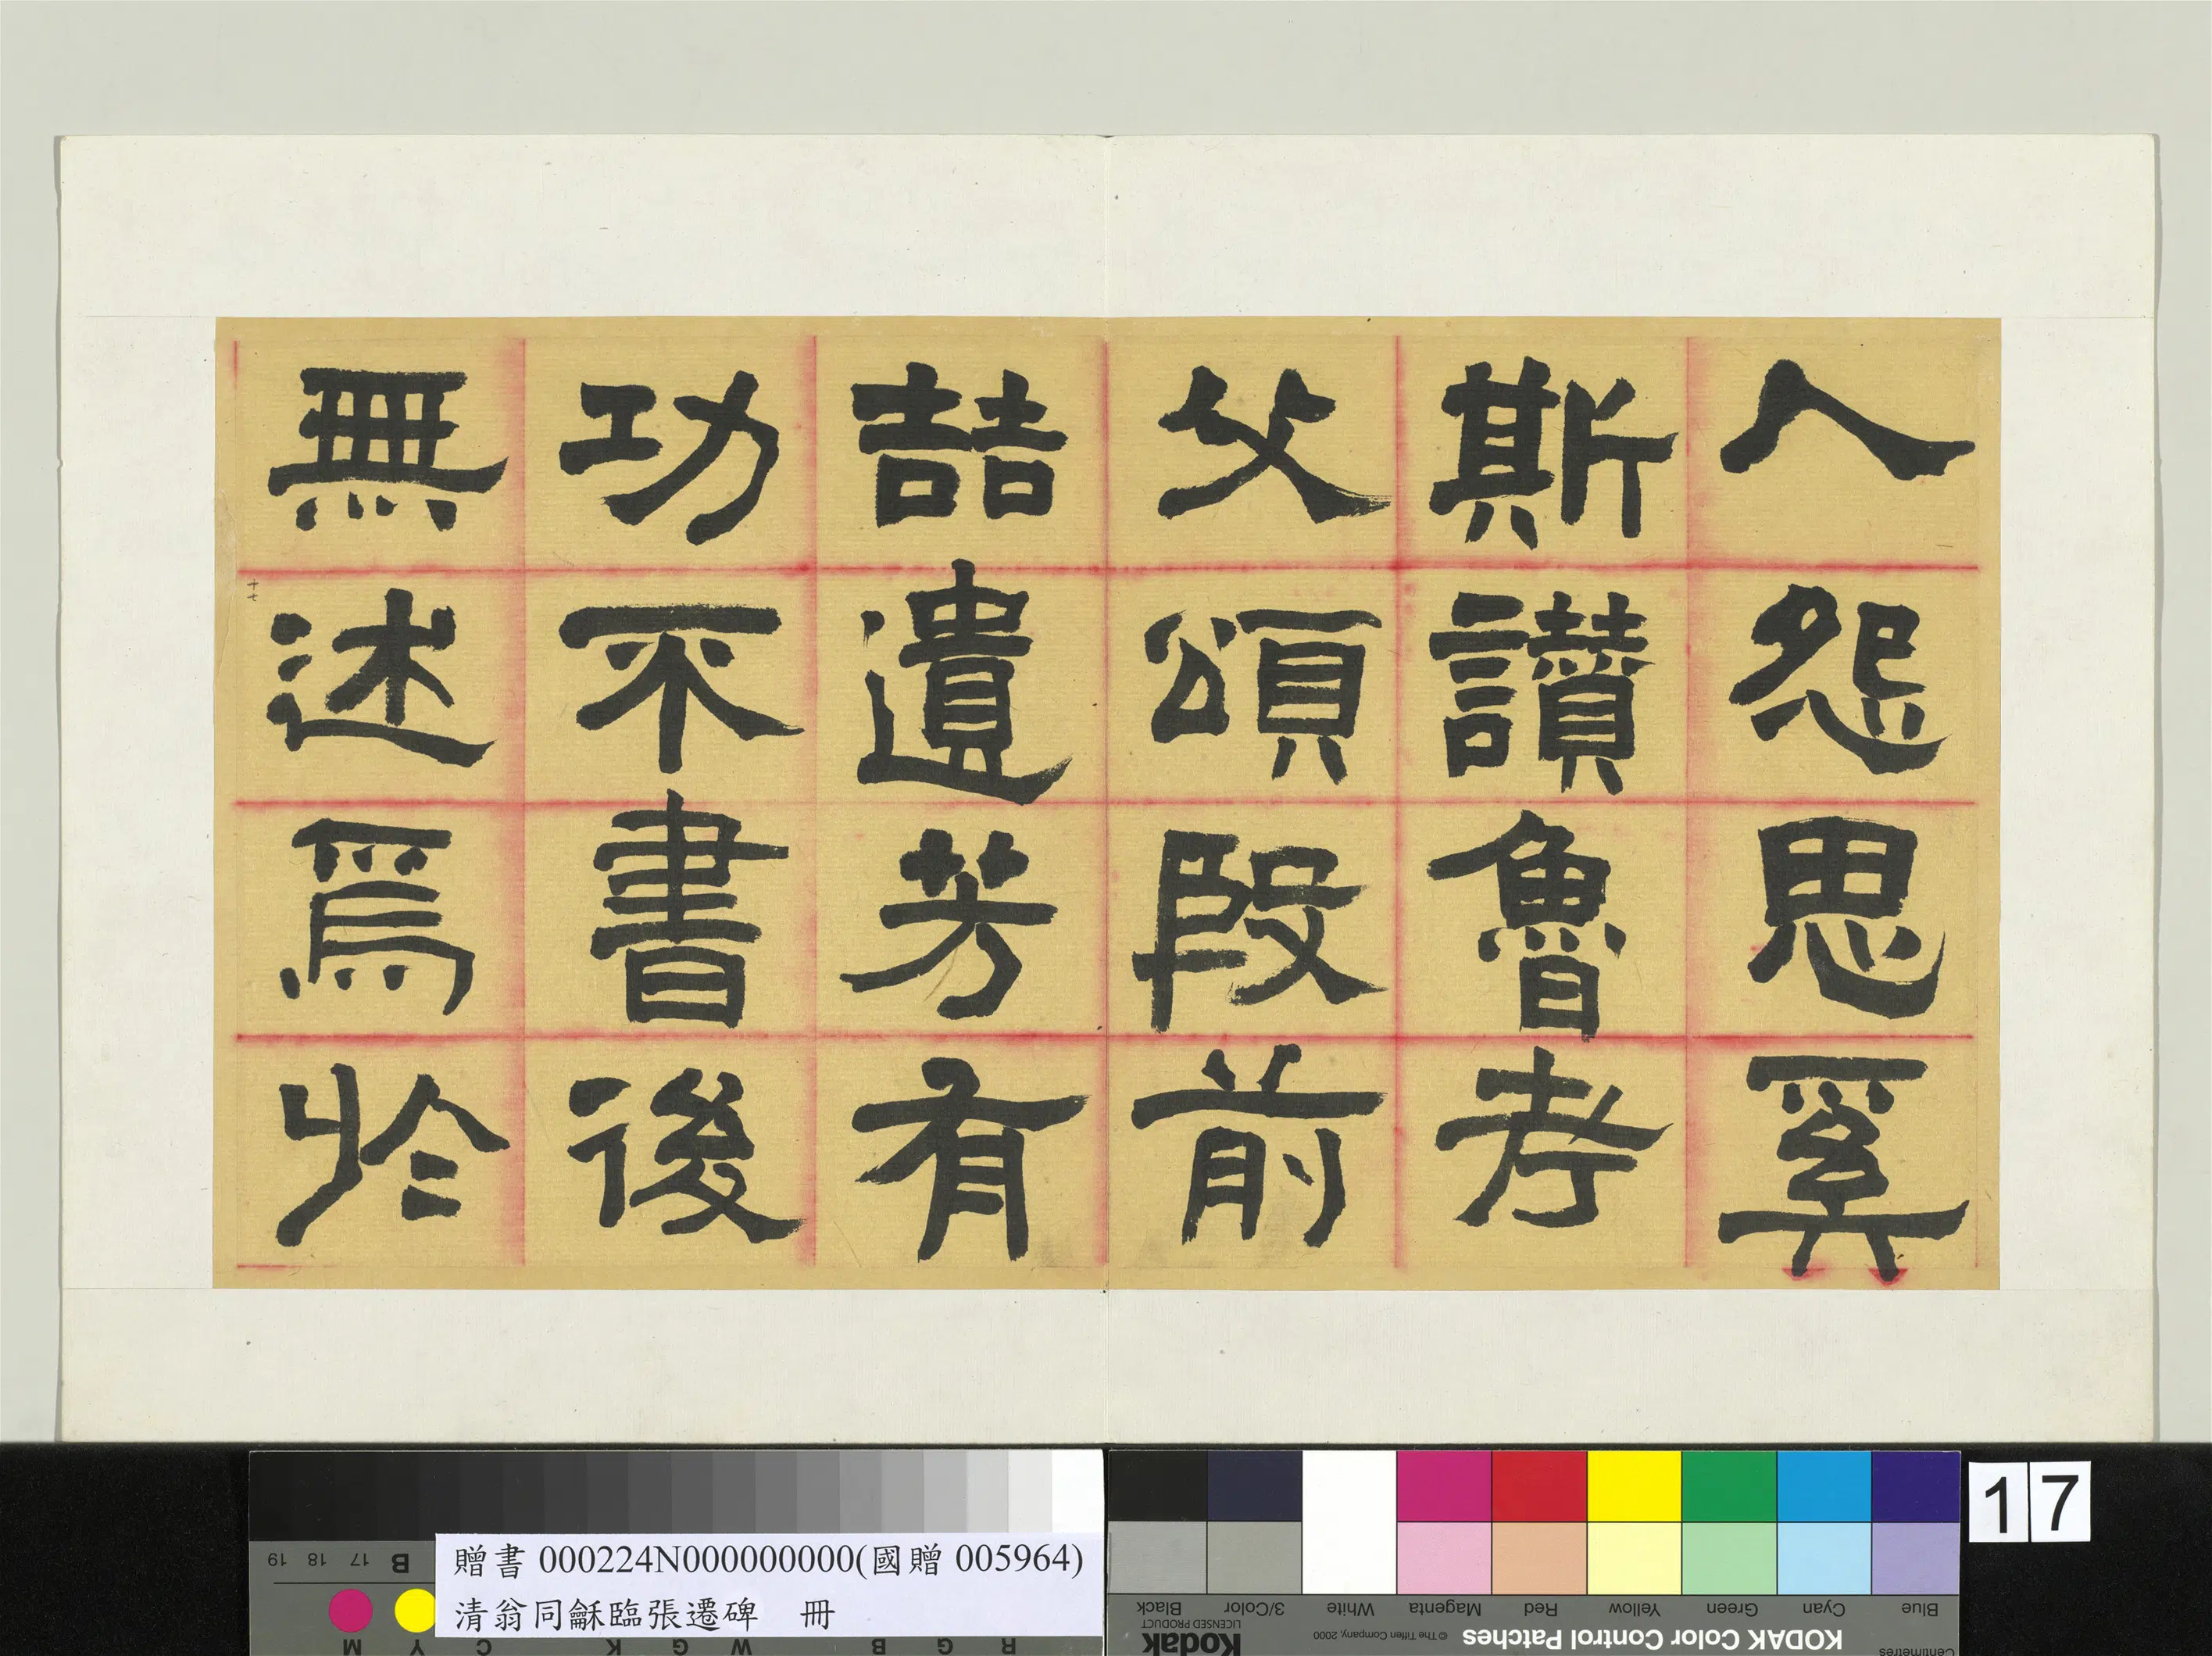 人怨思奚
斯讃魯考
父頌殷前
喆遺芳有
功不書後
無述焉於
十七
贈書 000224N000000000(國贈 005964)
清翁同龢臨張遷碑 冊
17
KODAK Color Control Patches
© The Tiffen Company, 2000
Kodak
LICENSED PRODUCT
Centimetres
Blue Cyan Green Yellow Red Magenta White 3/Color Black
R G B W G K C Y M
B 17 18 19